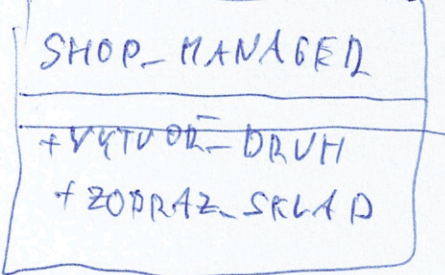 SHOP_MANAGER
+VYTVOR_DRUH
+ZOBRAZ_SKLAD